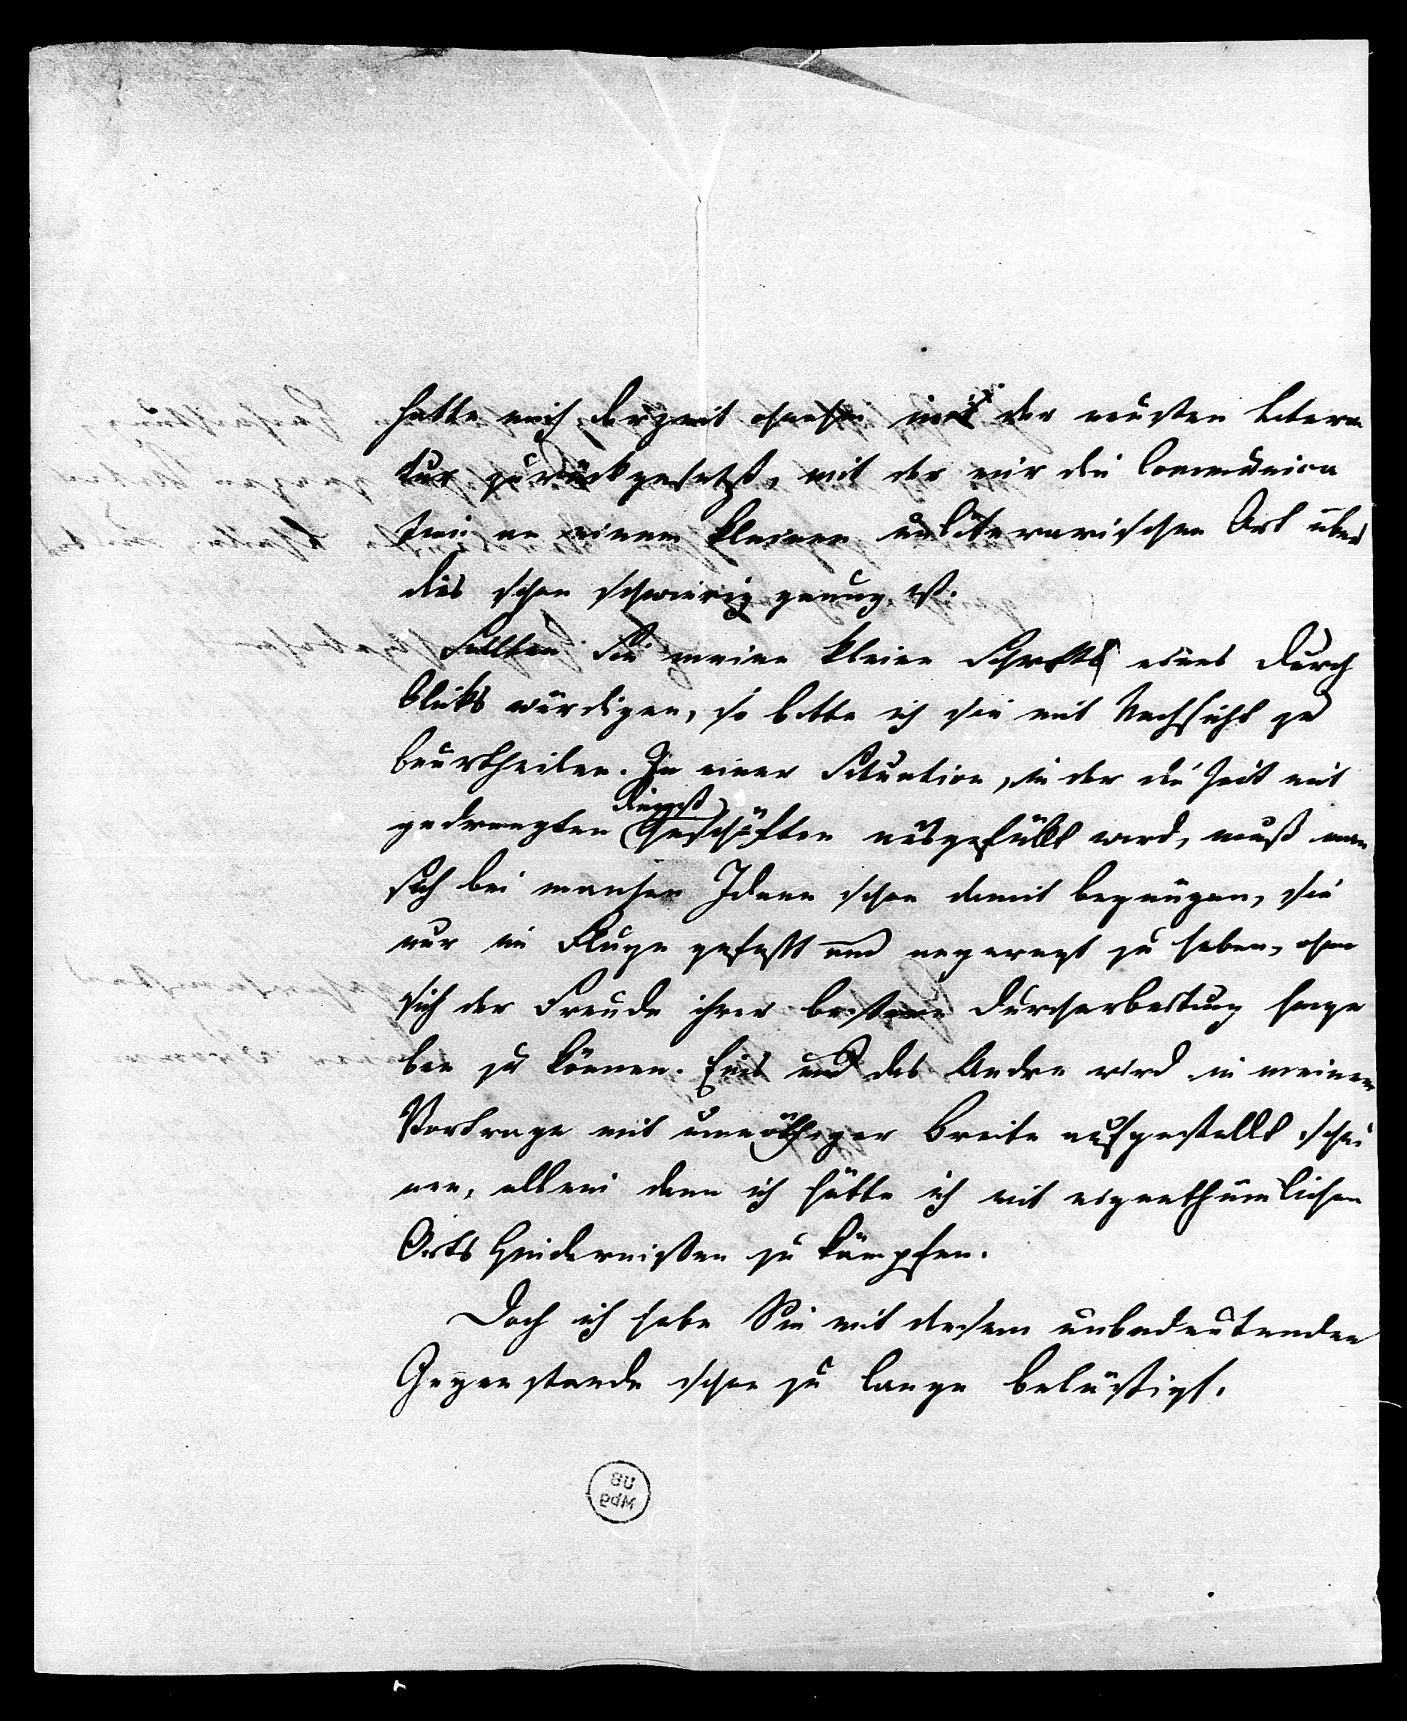 hatte mich derzeit ohnehin mit der neusten Litera
tur zurückgesetzt, mit der mir die Communica
tion an einem kleinen unliterarischen Ort über
dies schon schwierig genug ist.
Sollten Sie meine kleine Schrift eines Durch
bliks würdigen, so bitte ich sie mit Nachsicht zu
beurtheilen. In einer Situation, in der die Zeit mit
gedrengten Dienst Geschäften ausgefüllt wird, muß man
sich bei manchen Ideen schon damit begnügen, sie
nur im Fluge gefaßt und angeregt zu haben, ohne
sich der Freude ihrer Durcharbeitung hinge
ben zu können. Eins und das Andre wird in meinem
Vortrage mit unnöthiger Breite aufgestellt schei
nen, allein denn ich hätte ich mit eigenthümlichen
Orts Hindernißen zu kämpfen.
Doch ich habe Sie mit diesem unbedeutenden
Gegenstande schon zu lange belästigt.
UB
Mbg